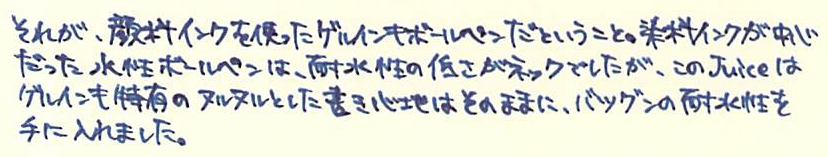 それが、顔料インクを使ったゲルインキボールペンだということ。染料インクが中心
だった水性ボールペンは、耐水性の低さがネックでしたが、このJuiceは
ゲルインキ特有のヌルヌルとした書き心地はそのままに、バツグンの耐水性を
手に入れました。